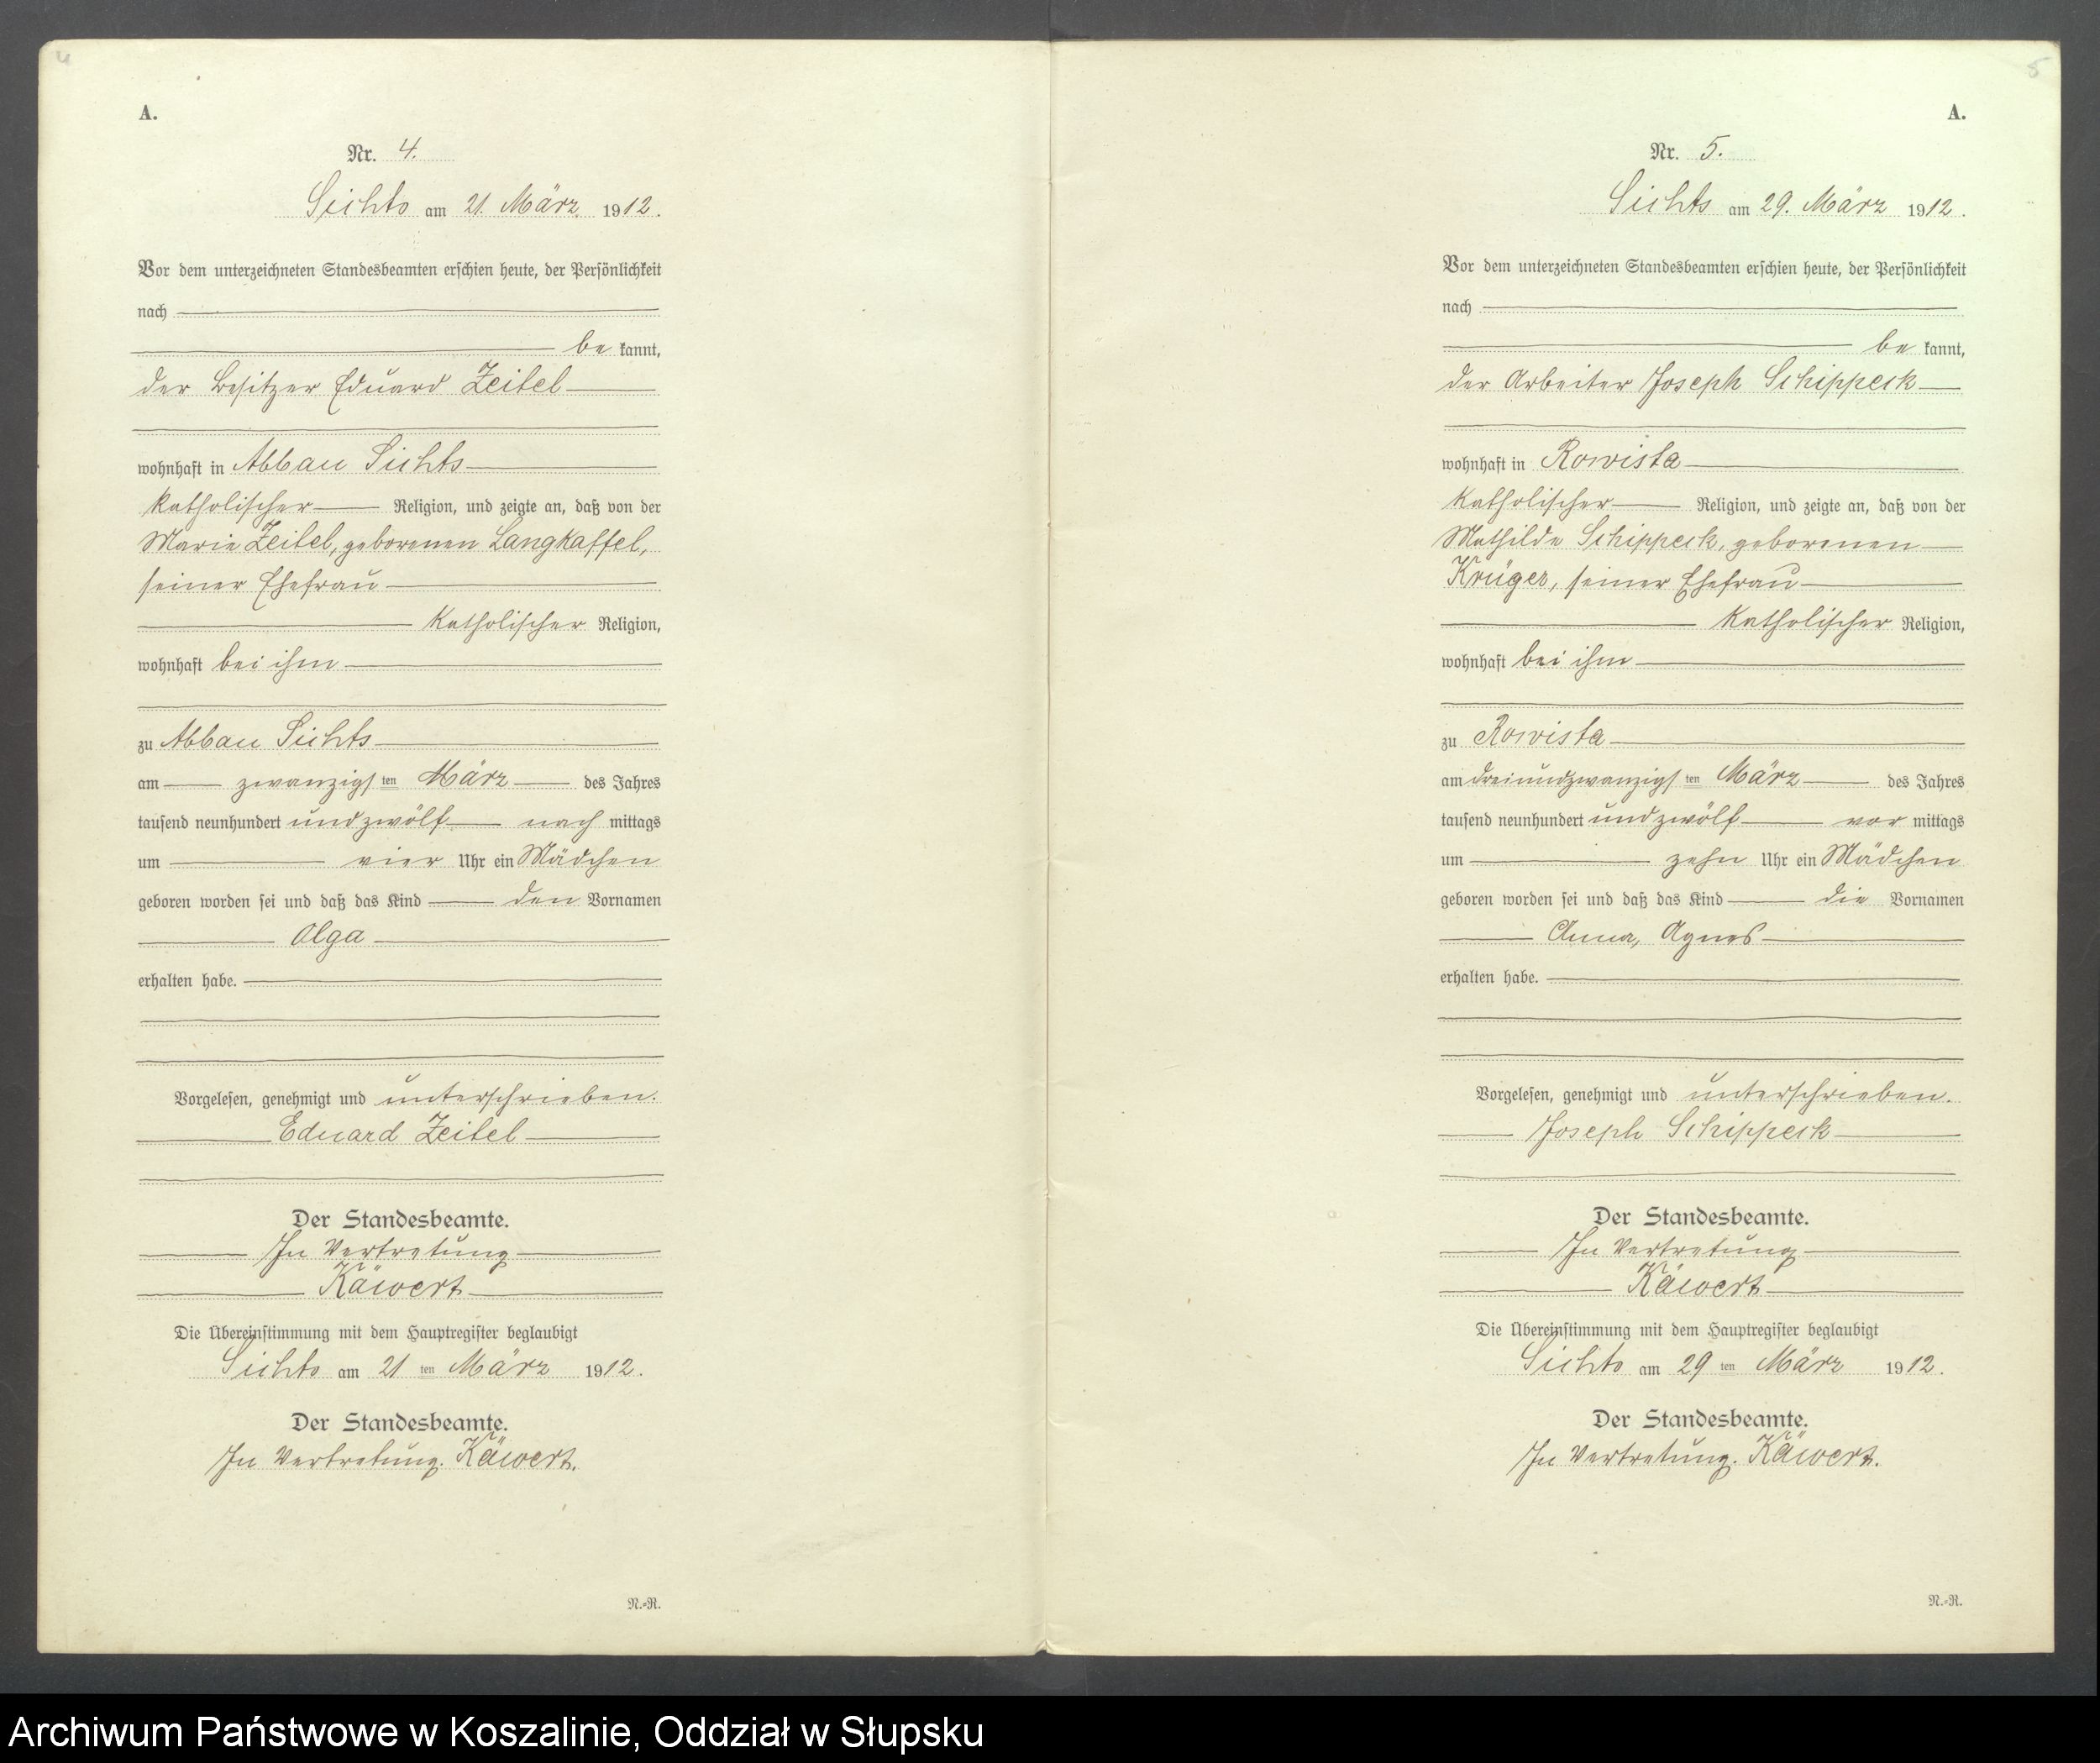 4
A.
Nr. 4.
Sichts am 21. März 1912.
Vor dem unterzeichneten Standesbeamten erschien heute, der Persönlichkeit
nach
be kannt,
der Besitzer Eduard Zeitel
wohnhaft in Abbau Sichts
katholischer Religion, und zeigte an, daß von der
Marie Zeitel, geborenen Langkaffel,
seiner Ehefrau
katholischer Religion,
wohnhaft bei ihm
zu Abbau Sichts
am zwanzigsten März des Jahres
tausend neunhundert undzwölf nach mittags
um vier Uhr ein Mädchen
geboren worden sei und daß das Kind den Vornamen
Olga
erhalten habe.
Vorgelesen, genehmigt und unterschrieben.
Eduard Zeitel
Der Standesbeamte.
In Vertretung
Käwert
Die Übereinstimmung mit dem Hauptregister beglaubigt
Sichts am 21 ten März 1912.
Der Standesbeamte.
In Vertretung. Käwert.
N.=R.
5
A.
Nr. 5.
Sichts am 29. März 1912.
Vor dem unterzeichneten Standesbeamten erschien heute, der Persönlichkeit
nach
be kannt,
der Arbeiter Joseph Schippeck
wohnhaft in Rowista
katholischer Religion, und zeigte an, daß von der
Mathilde Schippeck, geborenen
Krüger, seiner Ehefrau
katholischer Religion,
wohnhaft bei ihm
zu Rowista
am dreiundzwanzigsten März des Jahres
tausend neunhundert undzwölf vor mittags
um zehn Uhr ein Mädchen
geboren worden sei und daß das Kind die Vornamen
Anna, Agnes
erhalten habe.
Vorgelesen, genehmigt und unterschrieben.
Joseph Schippeck
Der Standesbeamte.
In Vertretung
Käwert
Die Übereinstimmung mit dem Hauptregister beglaubigt
Sichts am 29 ten März 1912.
Der Standesbeamte.
In Vertretung. Käwert.
N.=R.
Archiwum Państwowe w Koszalinie, Oddział w Słupsku